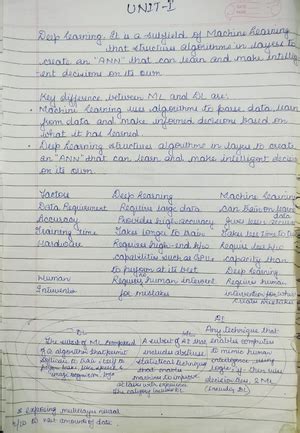 UNIT-I
Deep Learning: It is a subfield of Machine Learning
that structures algorithms in layers to
create an "ANN" that can learn and make intellig-
ent decisions on its own
Key difference between ML and DL are:
• Machine Learning uses algorithms to parse data, learn
from data and make informed decisions based on
what it has learned.
• Deep Learning structures algorithms in layer to create
an "ANN" that can learn and make intelligent decis
on its own.
Factors Deep Learning Machine Learning
Data Requirement Requires large data Can train on
data
Accuracy Provides high accuracy Gives less
Training Time Takes longer to train Takes less Time to
Hardware Requires high-end h/w Requires less h/w
capabilities such as GPUs capacity than
to perform at its best Deep Learning
Human Requires human intervent Requires human
for mistakes intervention for
DL
Any technique that
The subset of ML composed A subset of AI that enables computers
of algorithm that permit includes abstruse to mimic human
software to train itself to statistical techniques intelligence using
like speech & that enable logic, if-then
image recognition machines to decision
at tasks with experience
The category includes DL
multilayer neural
to vast amounts of data